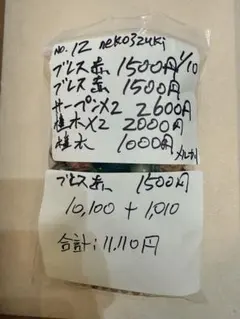 no.12 nekozuki
ブレス赤 1500円 1/10
ブレス赤 1500円
サーペンX2 2600円
植木X2 2000円
植木 1000円
メルカリ
ブレス赤 1500円
10,100 + 1,010
合計:11,110円